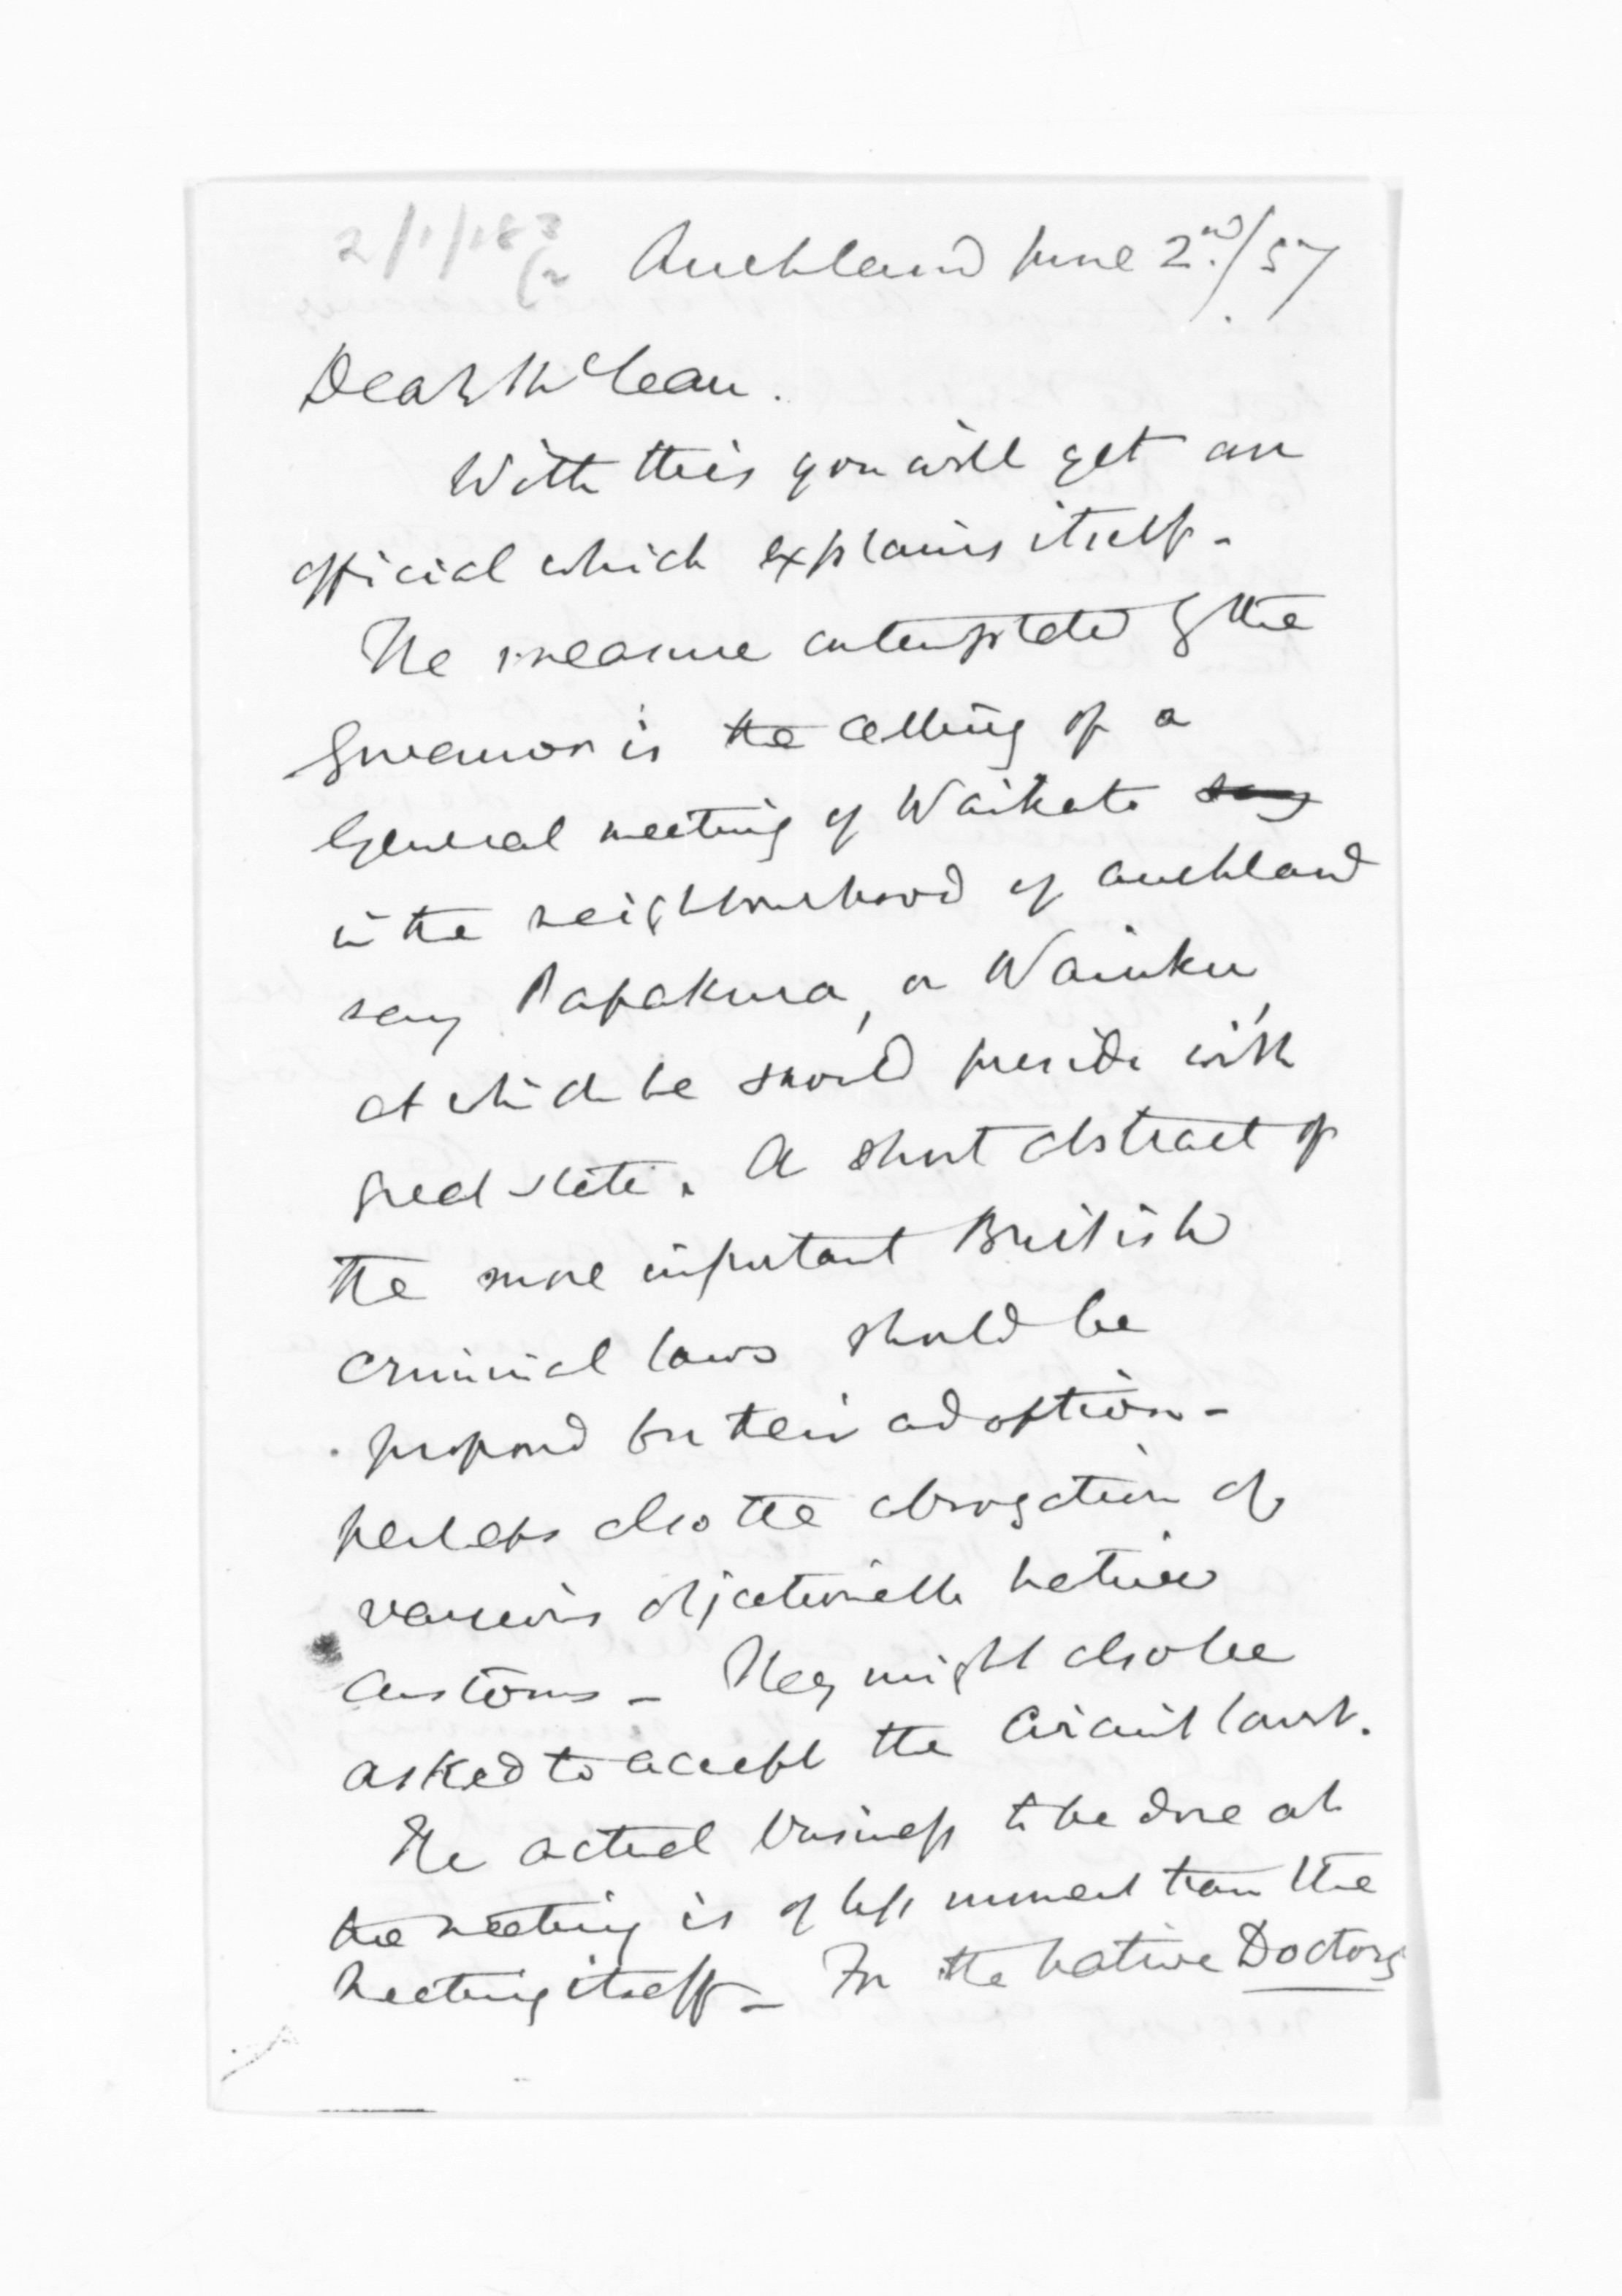 2/1/183
(2
Auckland June 2nd./57
Dear McClean.
With this you will get an
official which explains itself -
The measure contemplated by the
Governor is the calling of a
General meeting of Waikato say
in the neighbourhood of Auckland
say Papakura, or Waiuku,
at which he should preside with
great state. A short abstract of
the more important British
criminal laws should be
proposed for their adoption -
perhaps also the abrogation of
various objectionable native
customs - They might also be
asked to accept the Circuit Court.
The actual business to be done at
the meeting is of less moment than the
meeting itself - For the native Doctors